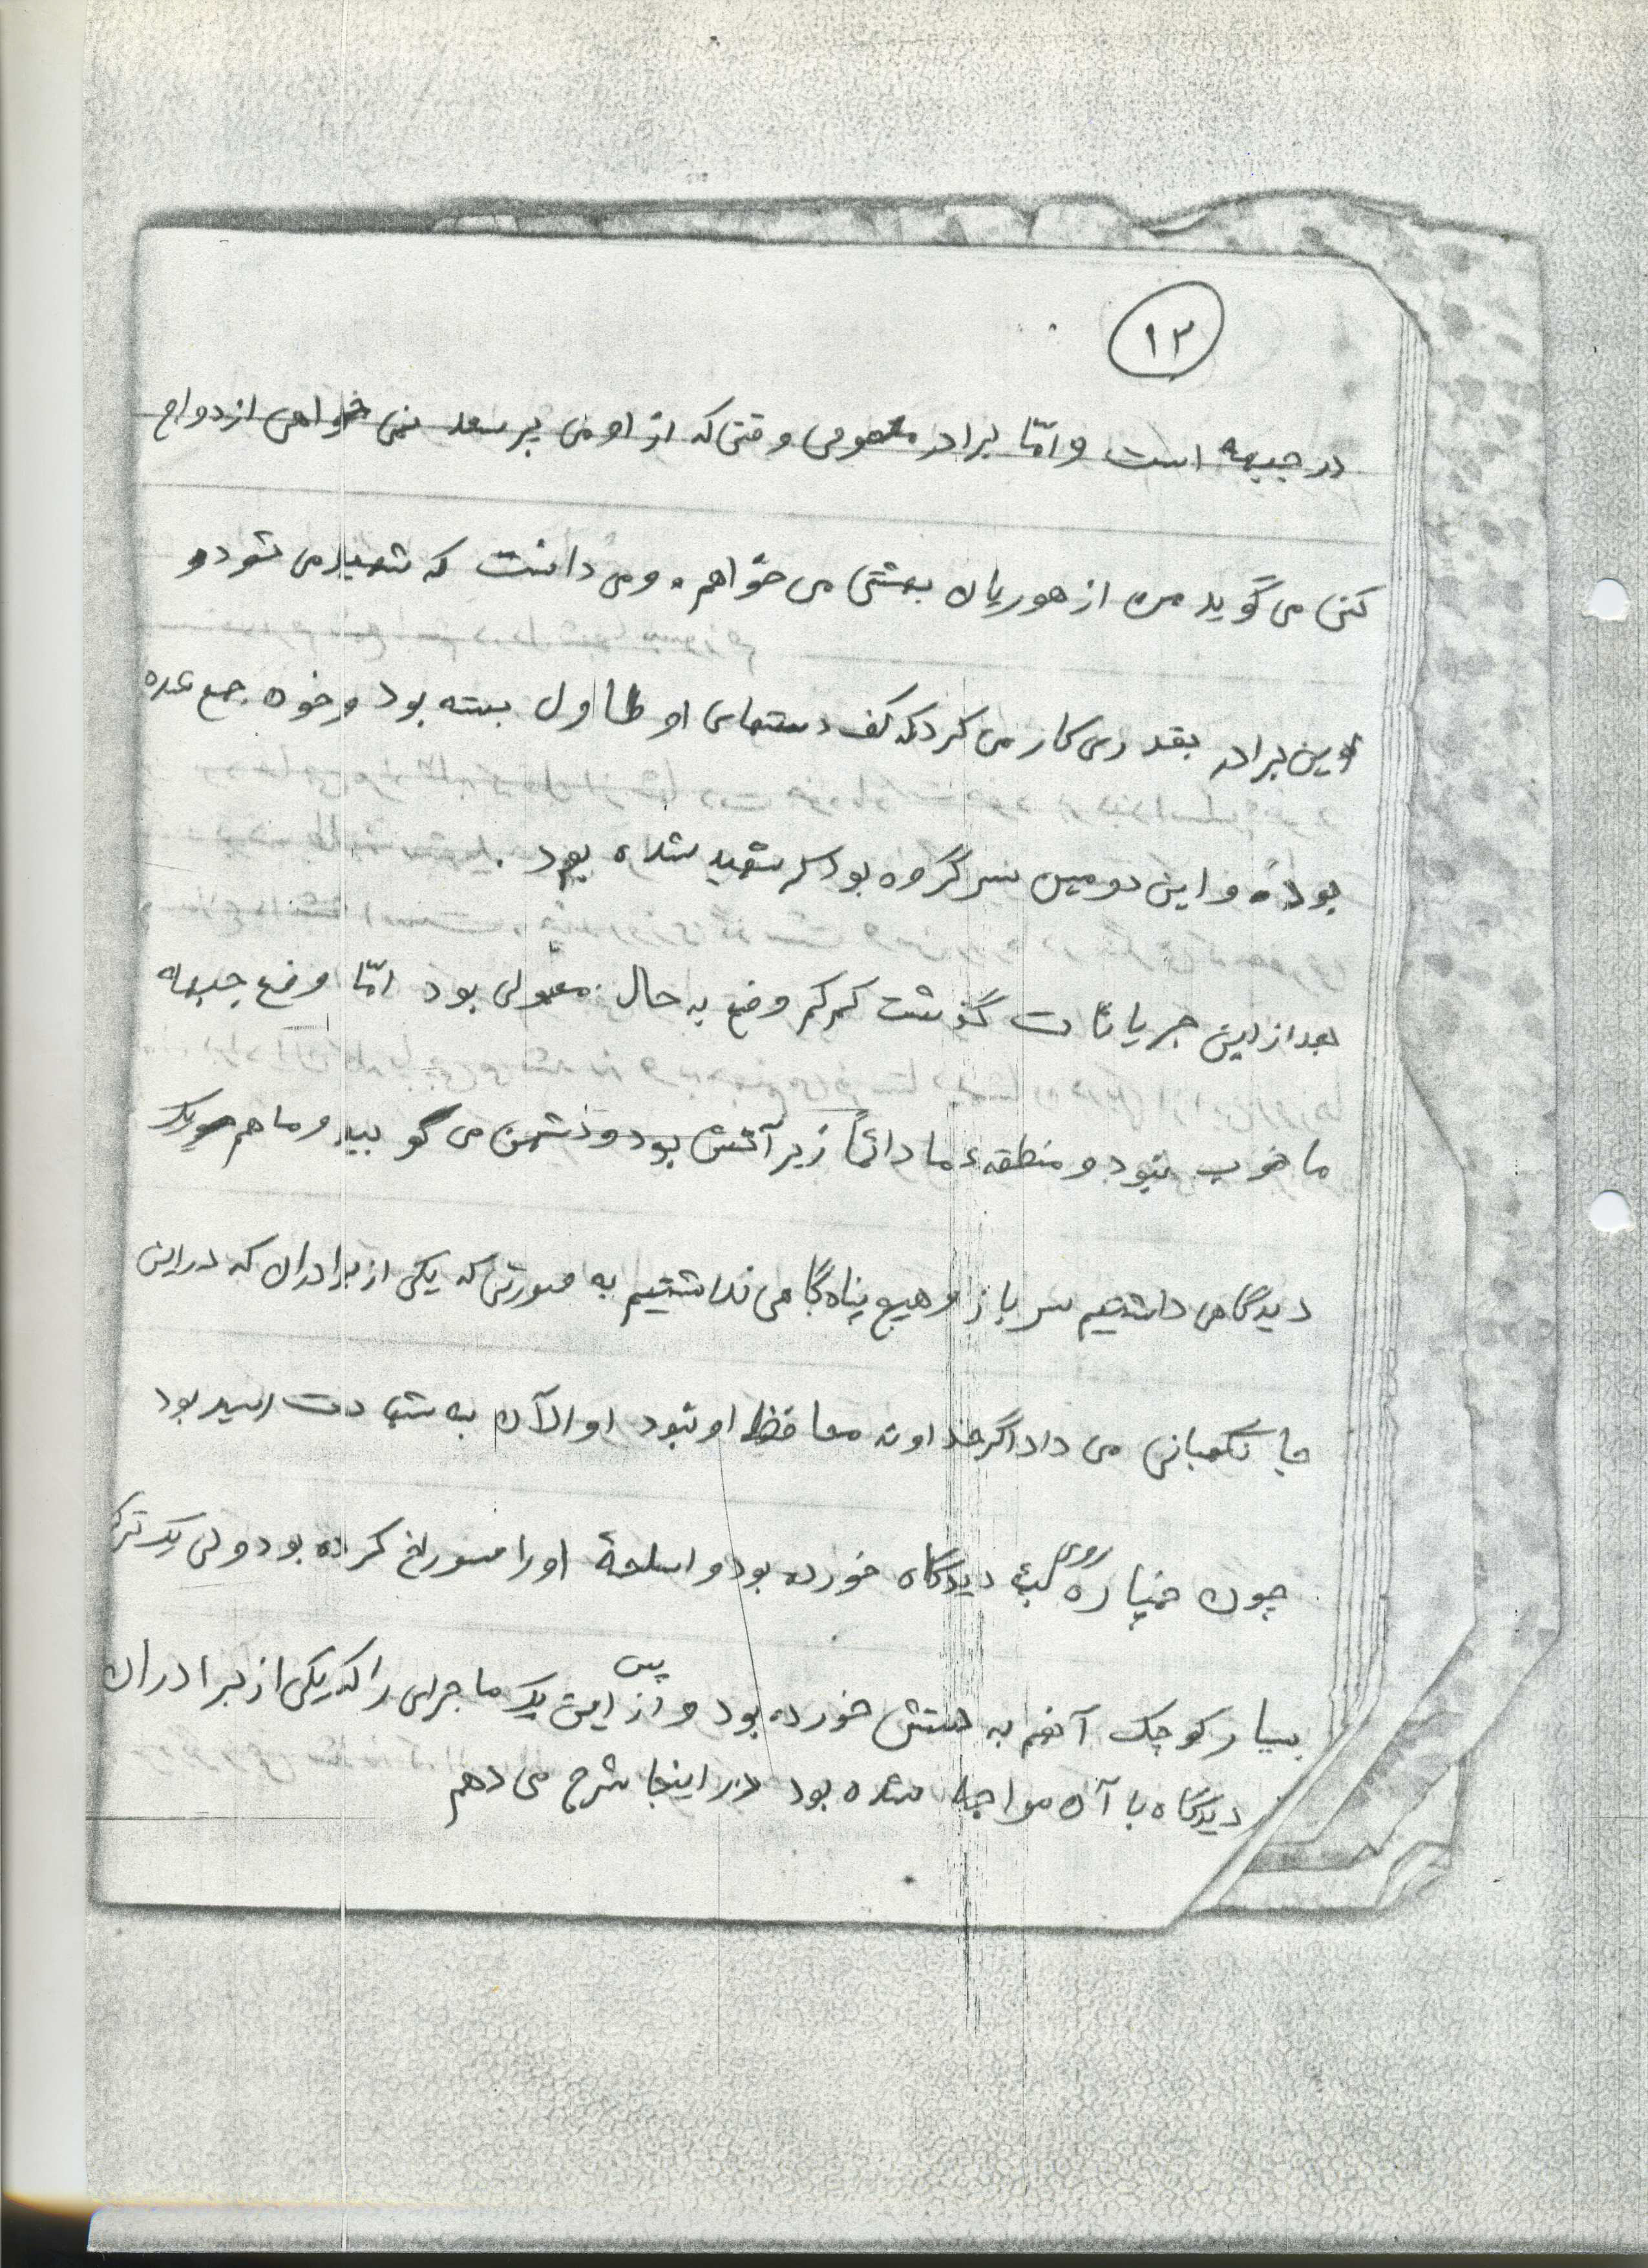 ۱۳
در جبهه است و امّا برادر معصومی وقتی که از او می پرسد نمی خواهی ازدواج
کنی می گوید من از هوریان بهشتی می خواهم. و می دانست که شهید می شود و
این برادر بقدری کار می کرد که کف دستهای او طاول بسته بود و خون جمع شده
بوده و این دومین سرگروه بود که شهید شده بود.
بعد از این جریانات گذشت کم کم وضع به حال معمولی بود امّا وضع جبهه
ما خوب نبود و منطقهٔ ما دائماً زیر آتش بود و دشمن می کوبید و ما هم یک
دیدگاهی داشتیم سر باز و هیچ پناه گاهی نداشتیم به صورتی که یکی از برادران که در این
جا نگهبانی می داد اگر خداوند محافظ او نبود او الآن به شهادت رسیده بود
چون خمپاره روی لبهٔ دیدگاه خورده بود و اسلحهٔ او را سوراخ کرده بود ولی یک ترکش
بسیار کوچک آنهم به دستش خورده بود و پس از این یک ماجرای را که یکی از برادران
دیدگاه با آن مواجه شده بود در اینجا شرح می دهم